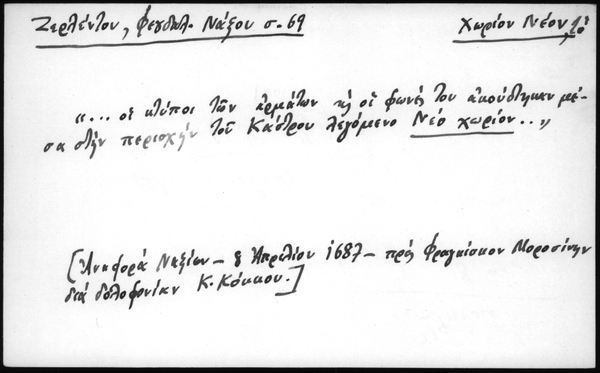 Ζερλέντου, Φεγδαλ. Νάξου σ. 69
Χωρίον Νέον, τό
"... οἱ κτύποι τῶν ἁρμάτων κὶ οἱ φωνές του ἀκούστηκαν μέ-
σα στὴν περιοχὴν τοῦ Κάστρου λεγόμενο Νέο χωρίον..."
[Ἀναφορά Ναξίων - 8 Ἀπριλίου 1687 - πρός Φραγκίσκον Μοροσίνην
διά δολοφονίαν Κ. Κόκκου.]